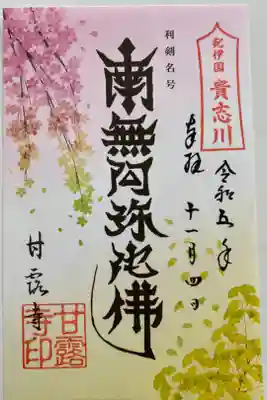 紀伊国
貴志川
奉拝
令和五年
十一月四日
利剣名号
南無阿弥陀佛
甘露寺
甘露寺印